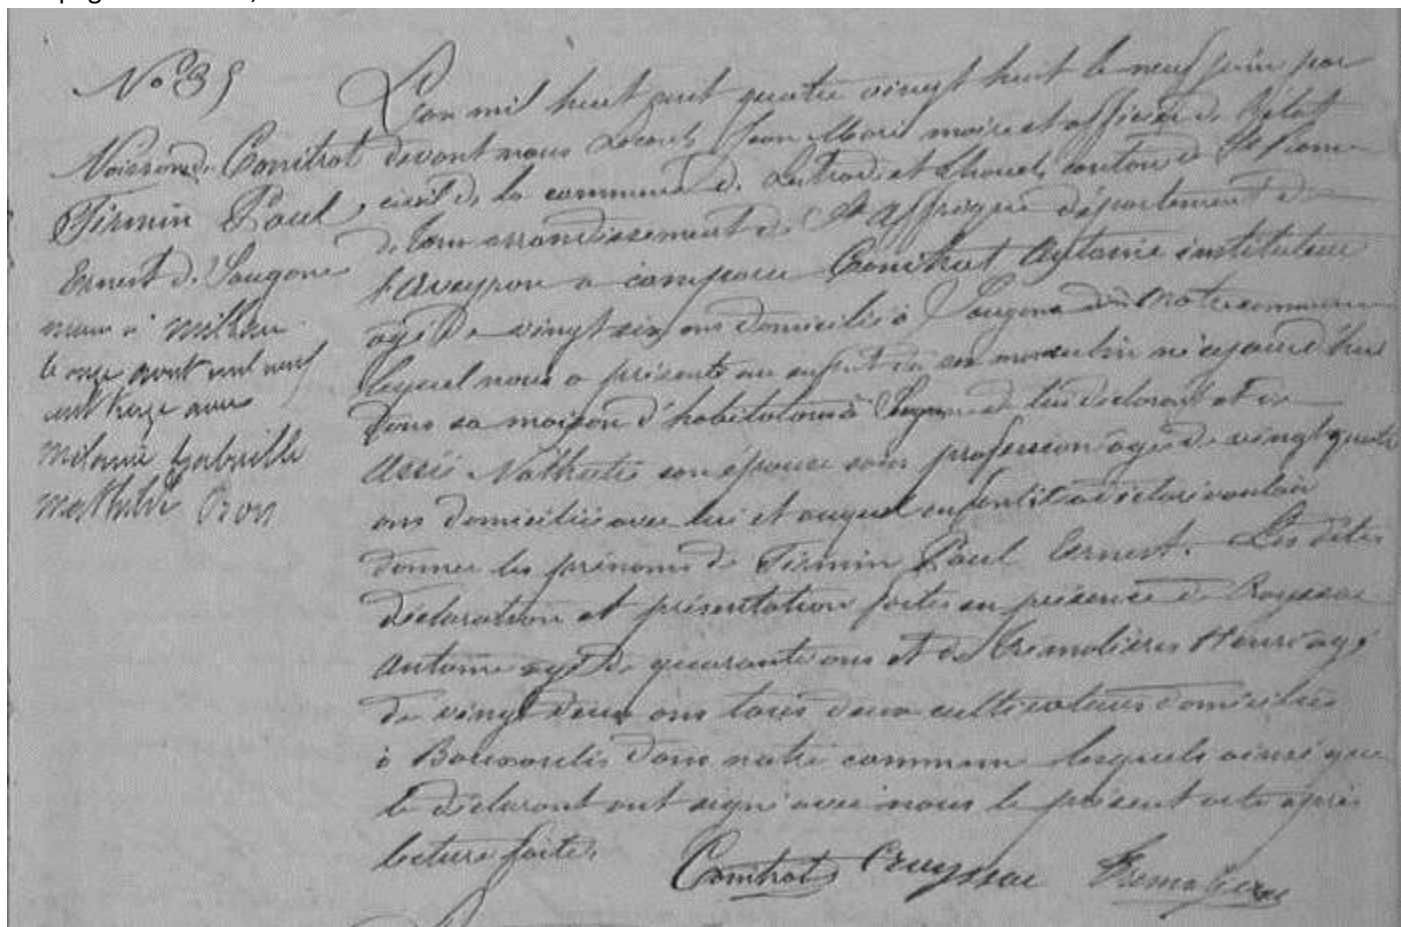 No 35
Naissance de Comitrot
Firmin Paul
Ernest de Saugane
marié à Millau
le onze août mil neuf
cent treize avec
Mélanie Gabrielle
Mathilde
L'an mil huit cent quatre vingt huit le neuf juin par
devant nous Jean Marie maire et officier de l'état
civil de la commune de Lestrade et Thouels canton de St Rome
de Tarn arrondissement de St Affrique département de
l'Aveyron a comparu Antoine instituteur
âgé de vingt six ans domicilié à dans notre commune
lequel nous a présenté un enfant du sexe masculin né aujourd'hui
dans sa maison d'habitation à de lui déclarant et de
Assié Nathalie son épouse sans profession âgée de vingt quatre
ans domiciliée avec lui et auquel enfant il a déclaré vouloir
donner les prénoms de Firmin Paul Ernest. Les dites
déclaration et présentation faites en présence de
Antoine âgé de quarante ans et de Trémolières Henri âgé
de vingt deux ans tous deux cultivateurs domiciliés
à dans notre commune lesquels ainsi que
le déclarant ont signé avec nous le présent acte après
lecture faite.